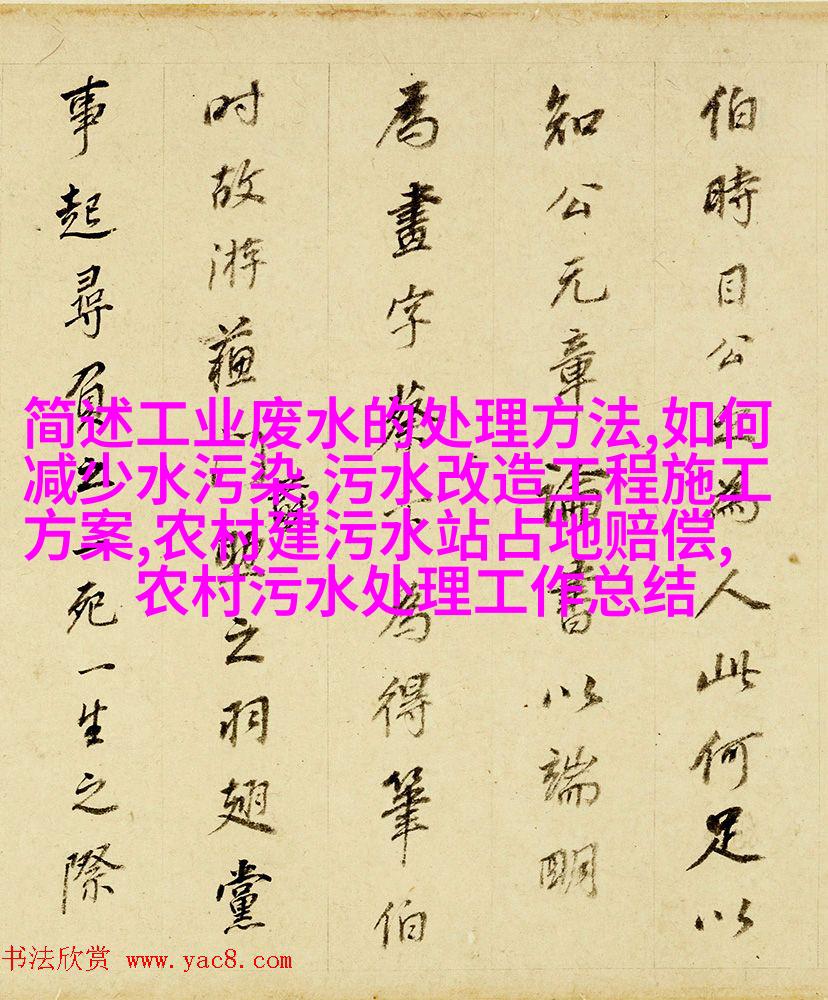 伯時目公為人此何足以
知公元章論書以端明
為畫字蔡為得筆伯
时故游蘓之羽翅黨
事起尋負之一死一生之際
简述工业废水的处理方法,如何
减少水污染,污水改造工程施工
方案,农村建污水站占地赔偿,
农村污水处理工作总结
书法欣赏 www.yac8.com